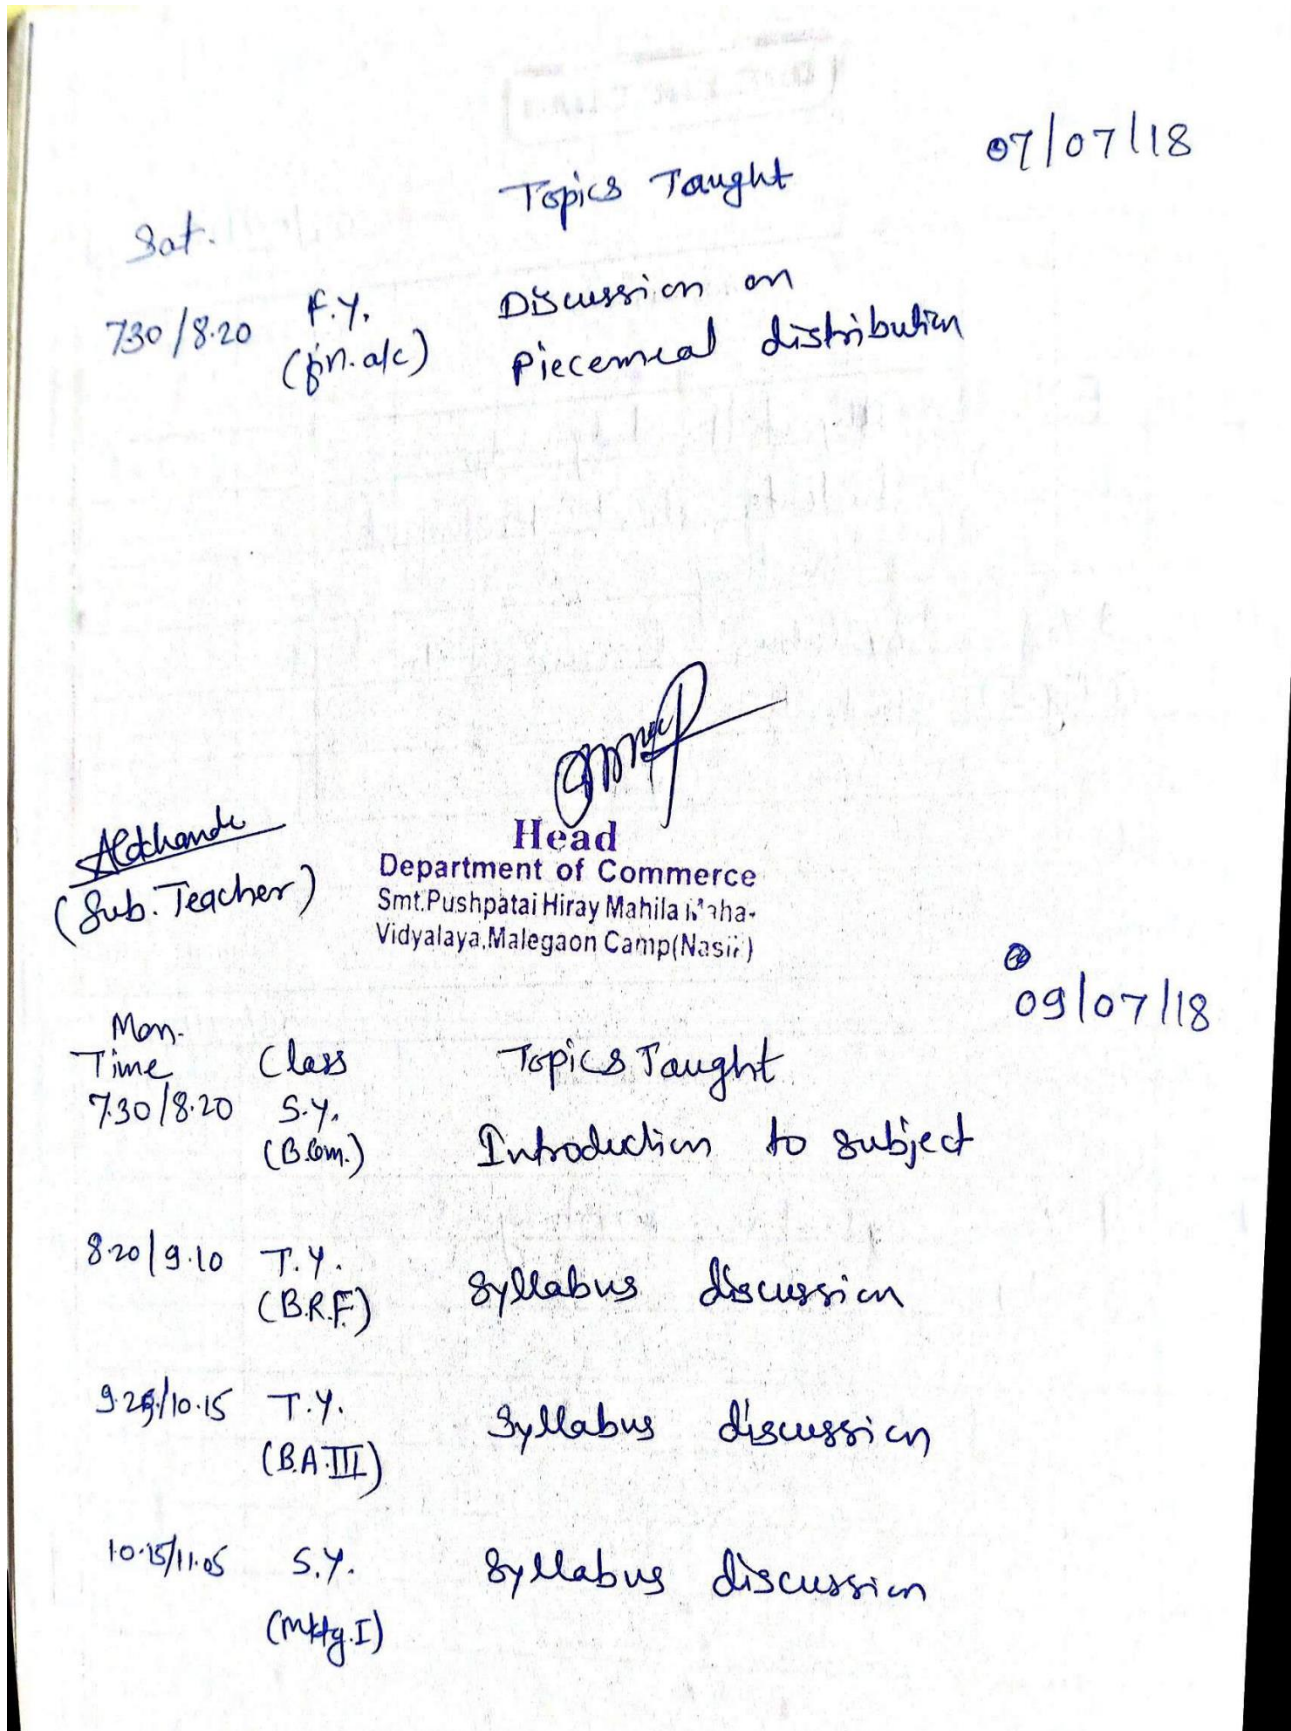 07/07/18
Topics Taught
Sat.
7.30/8.20 F.Y. Discussion on
(fin. a/c) Piecemeal distribution
(Sub. Teacher)
Head
Department of Commerce
Smt.Pushpatai Hiray Mahila Maha-
Vidyalaya,Malegaon Camp(Nasik)
09/07/18
Mon.
Time Class Topics Taught
7.30/8.20 S.Y.
(B.Com.) Introduction to subject
8.20/9.10 T.Y.
(B.R.F.) Syllabus discussion
9.25/10.15 T.Y. Syllabus discussion
(B.A.III)
10.15/11.05 S.Y. Syllabus discussion
(Mktg.I)